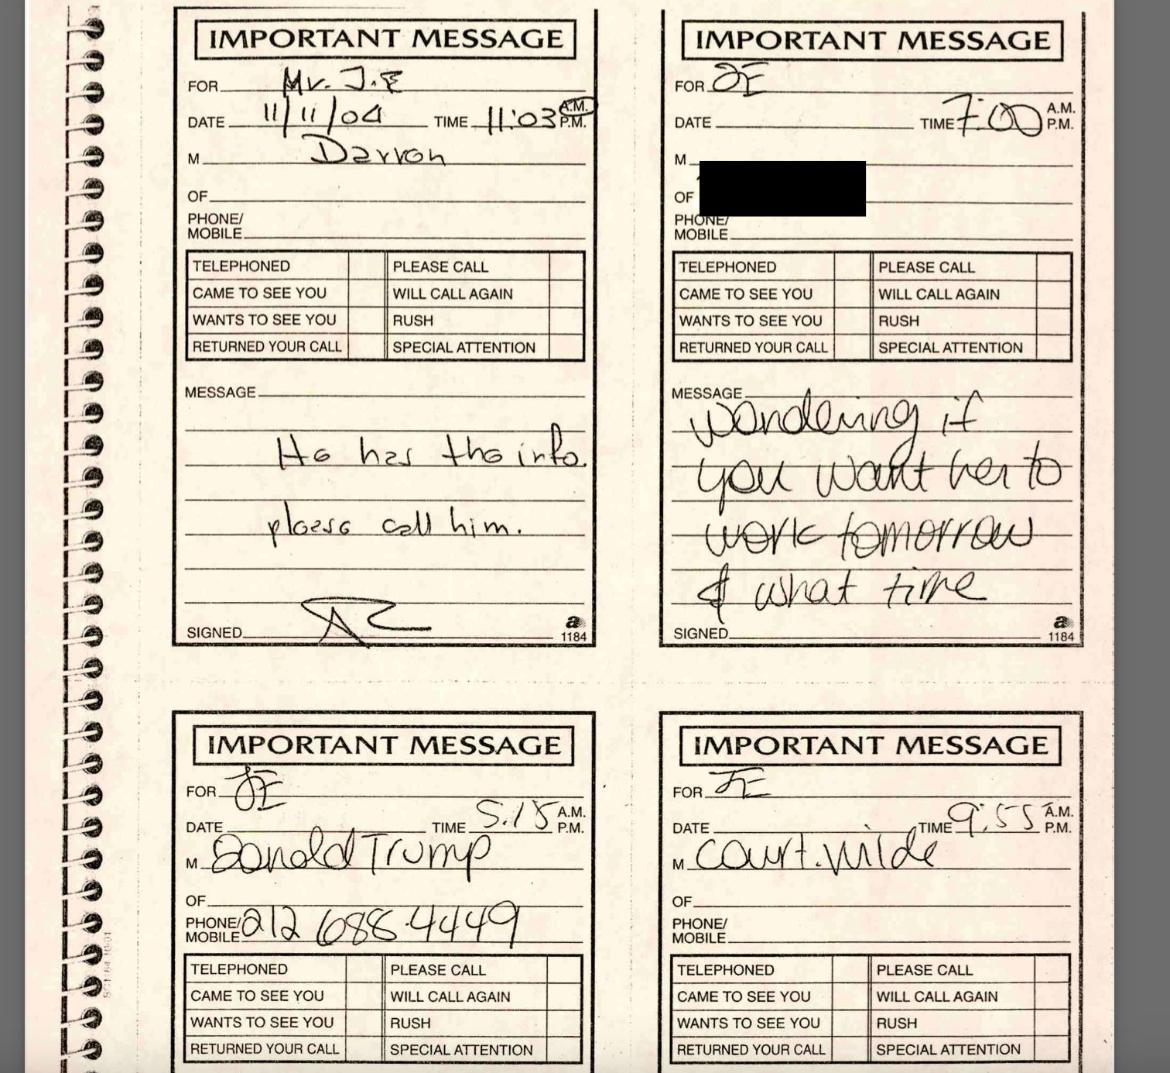 IMPORTANT MESSAGE
FOR Mr. J.E
DATE 11/11/04 TIME 11:03 A.M. P.M.
M Darren
OF
PHONE/
MOBILE
TELEPHONED PLEASE CALL
CAME TO SEE YOU WILL CALL AGAIN
WANTS TO SEE YOU RUSH
RETURNED YOUR CALL SPECIAL ATTENTION
MESSAGE
He has the info.
please call him.
SIGNED
a
1184
IMPORTANT MESSAGE
FOR JE
DATE TIME 7:00 A.M. P.M.
M
OF
PHONE/
MOBILE
TELEPHONED PLEASE CALL
CAME TO SEE YOU WILL CALL AGAIN
WANTS TO SEE YOU RUSH
RETURNED YOUR CALL SPECIAL ATTENTION
MESSAGE
wondering if
you want her to
work tomorrow
& what time
SIGNED
a
1184
IMPORTANT MESSAGE
FOR JE
DATE TIME 5:15 A.M. P.M.
M Donald Trump
OF
PHONE/
MOBILE 212 688-4449
TELEPHONED PLEASE CALL
CAME TO SEE YOU WILL CALL AGAIN
WANTS TO SEE YOU RUSH
RETURNED YOUR CALL SPECIAL ATTENTION
IMPORTANT MESSAGE
FOR JE
DATE TIME 9:55 A.M. P.M.
M court.
OF
PHONE/
MOBILE
TELEPHONED PLEASE CALL
CAME TO SEE YOU WILL CALL AGAIN
WANTS TO SEE YOU RUSH
RETURNED YOUR CALL SPECIAL ATTENTION